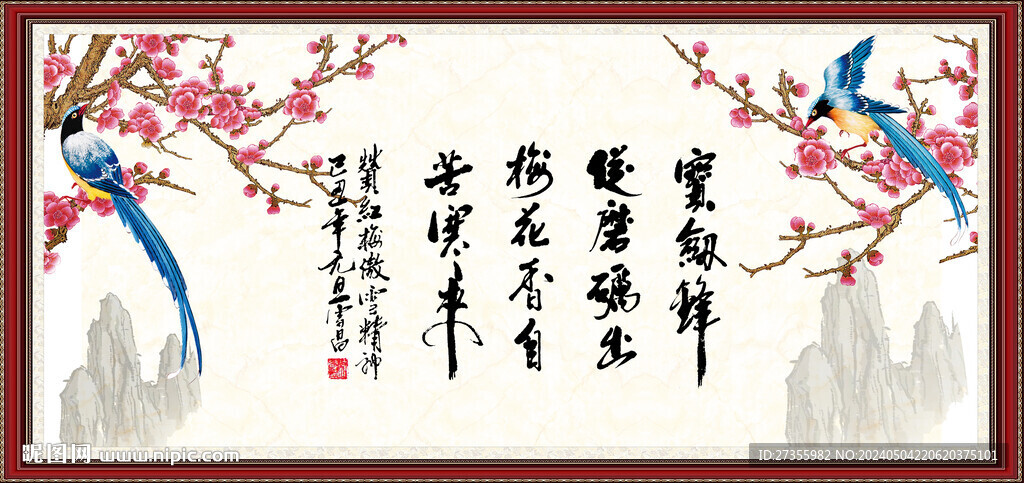 寶劍鋒
從磨礪出
梅花香自
苦寒來
贊紅梅傲雪精神
己丑年元旦雷昌
昵图网 www.nipic.com
ID:27355982 NO:20240504220620375101